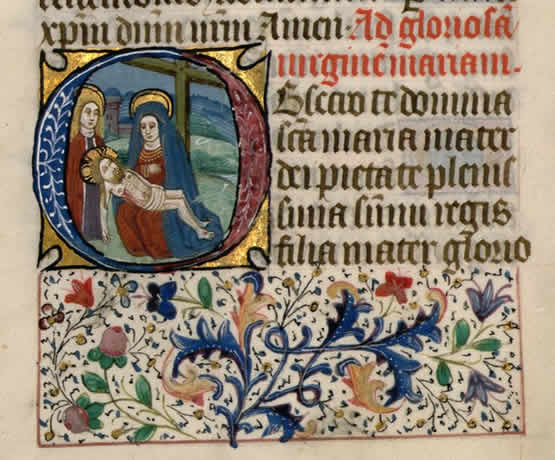 xp̄m dn̄m nr̄m Amen. Ad gloriosā
uirginē mariam.
Obsecro te domina
sc̄a maria mater
dei pietate plenis
sima sūmi regis
filia mater glorio